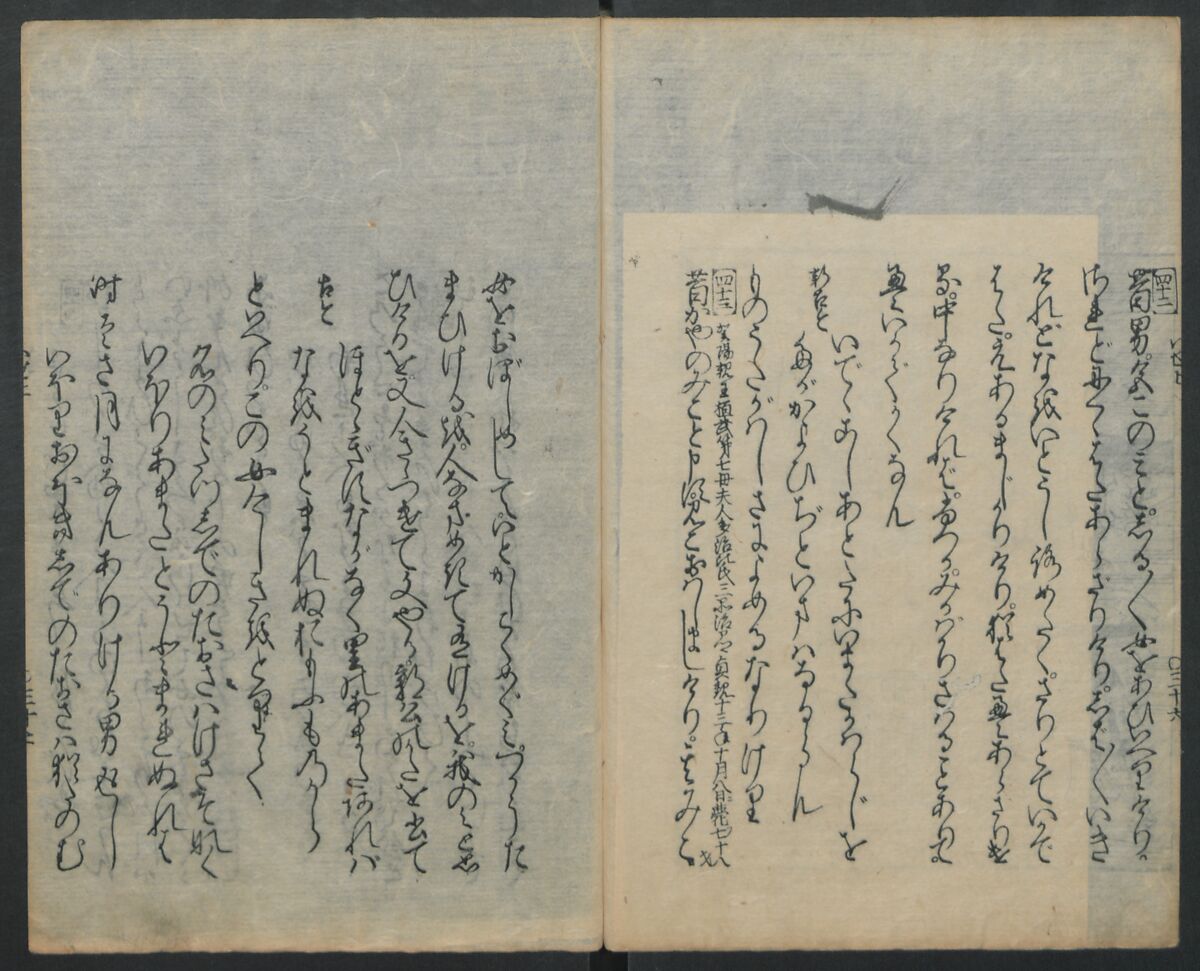 四十二
昔男。色このみとしる〳〵女をあひいへりけり。
されどにくゝはたあらざりけり。しば〳〵いき
けれどなをいとうしろめたく。さりとていかで
はた。えあるまじかりけり。猶はたえあらざりけ
る。中なりければ。ふつかみかばかりさはることありて。
えいかでかくなん
いでゝこしあとだにいまだかはらじを
たがかよひぢといまはなるらん
ものうたがはしさによめるなりけり
四十三
賀陽親王桓武第七母夫人多治比氏三品治部卿貞観十三年十月八日薨七十八才
昔かやのみこと申すみこおはしましけり。其みこ
女をおぼしめしていとかしこくめぐみつかうた
まひけるを。人なまめきて有けるを。我のみと思
ひけるを又人きゝつけて文やる。郭公のかたを書て
ほとゝぎすながなく里のあまたあれば
なをうとまれぬおもふものから
といへり。この女けしきをとりて
名のみたつしでのたおさはけさぞなく
いほりあまたとうとまれぬれば
時はさ月になんありける男返し
いほりおほきしでのたおさは猶たのむ